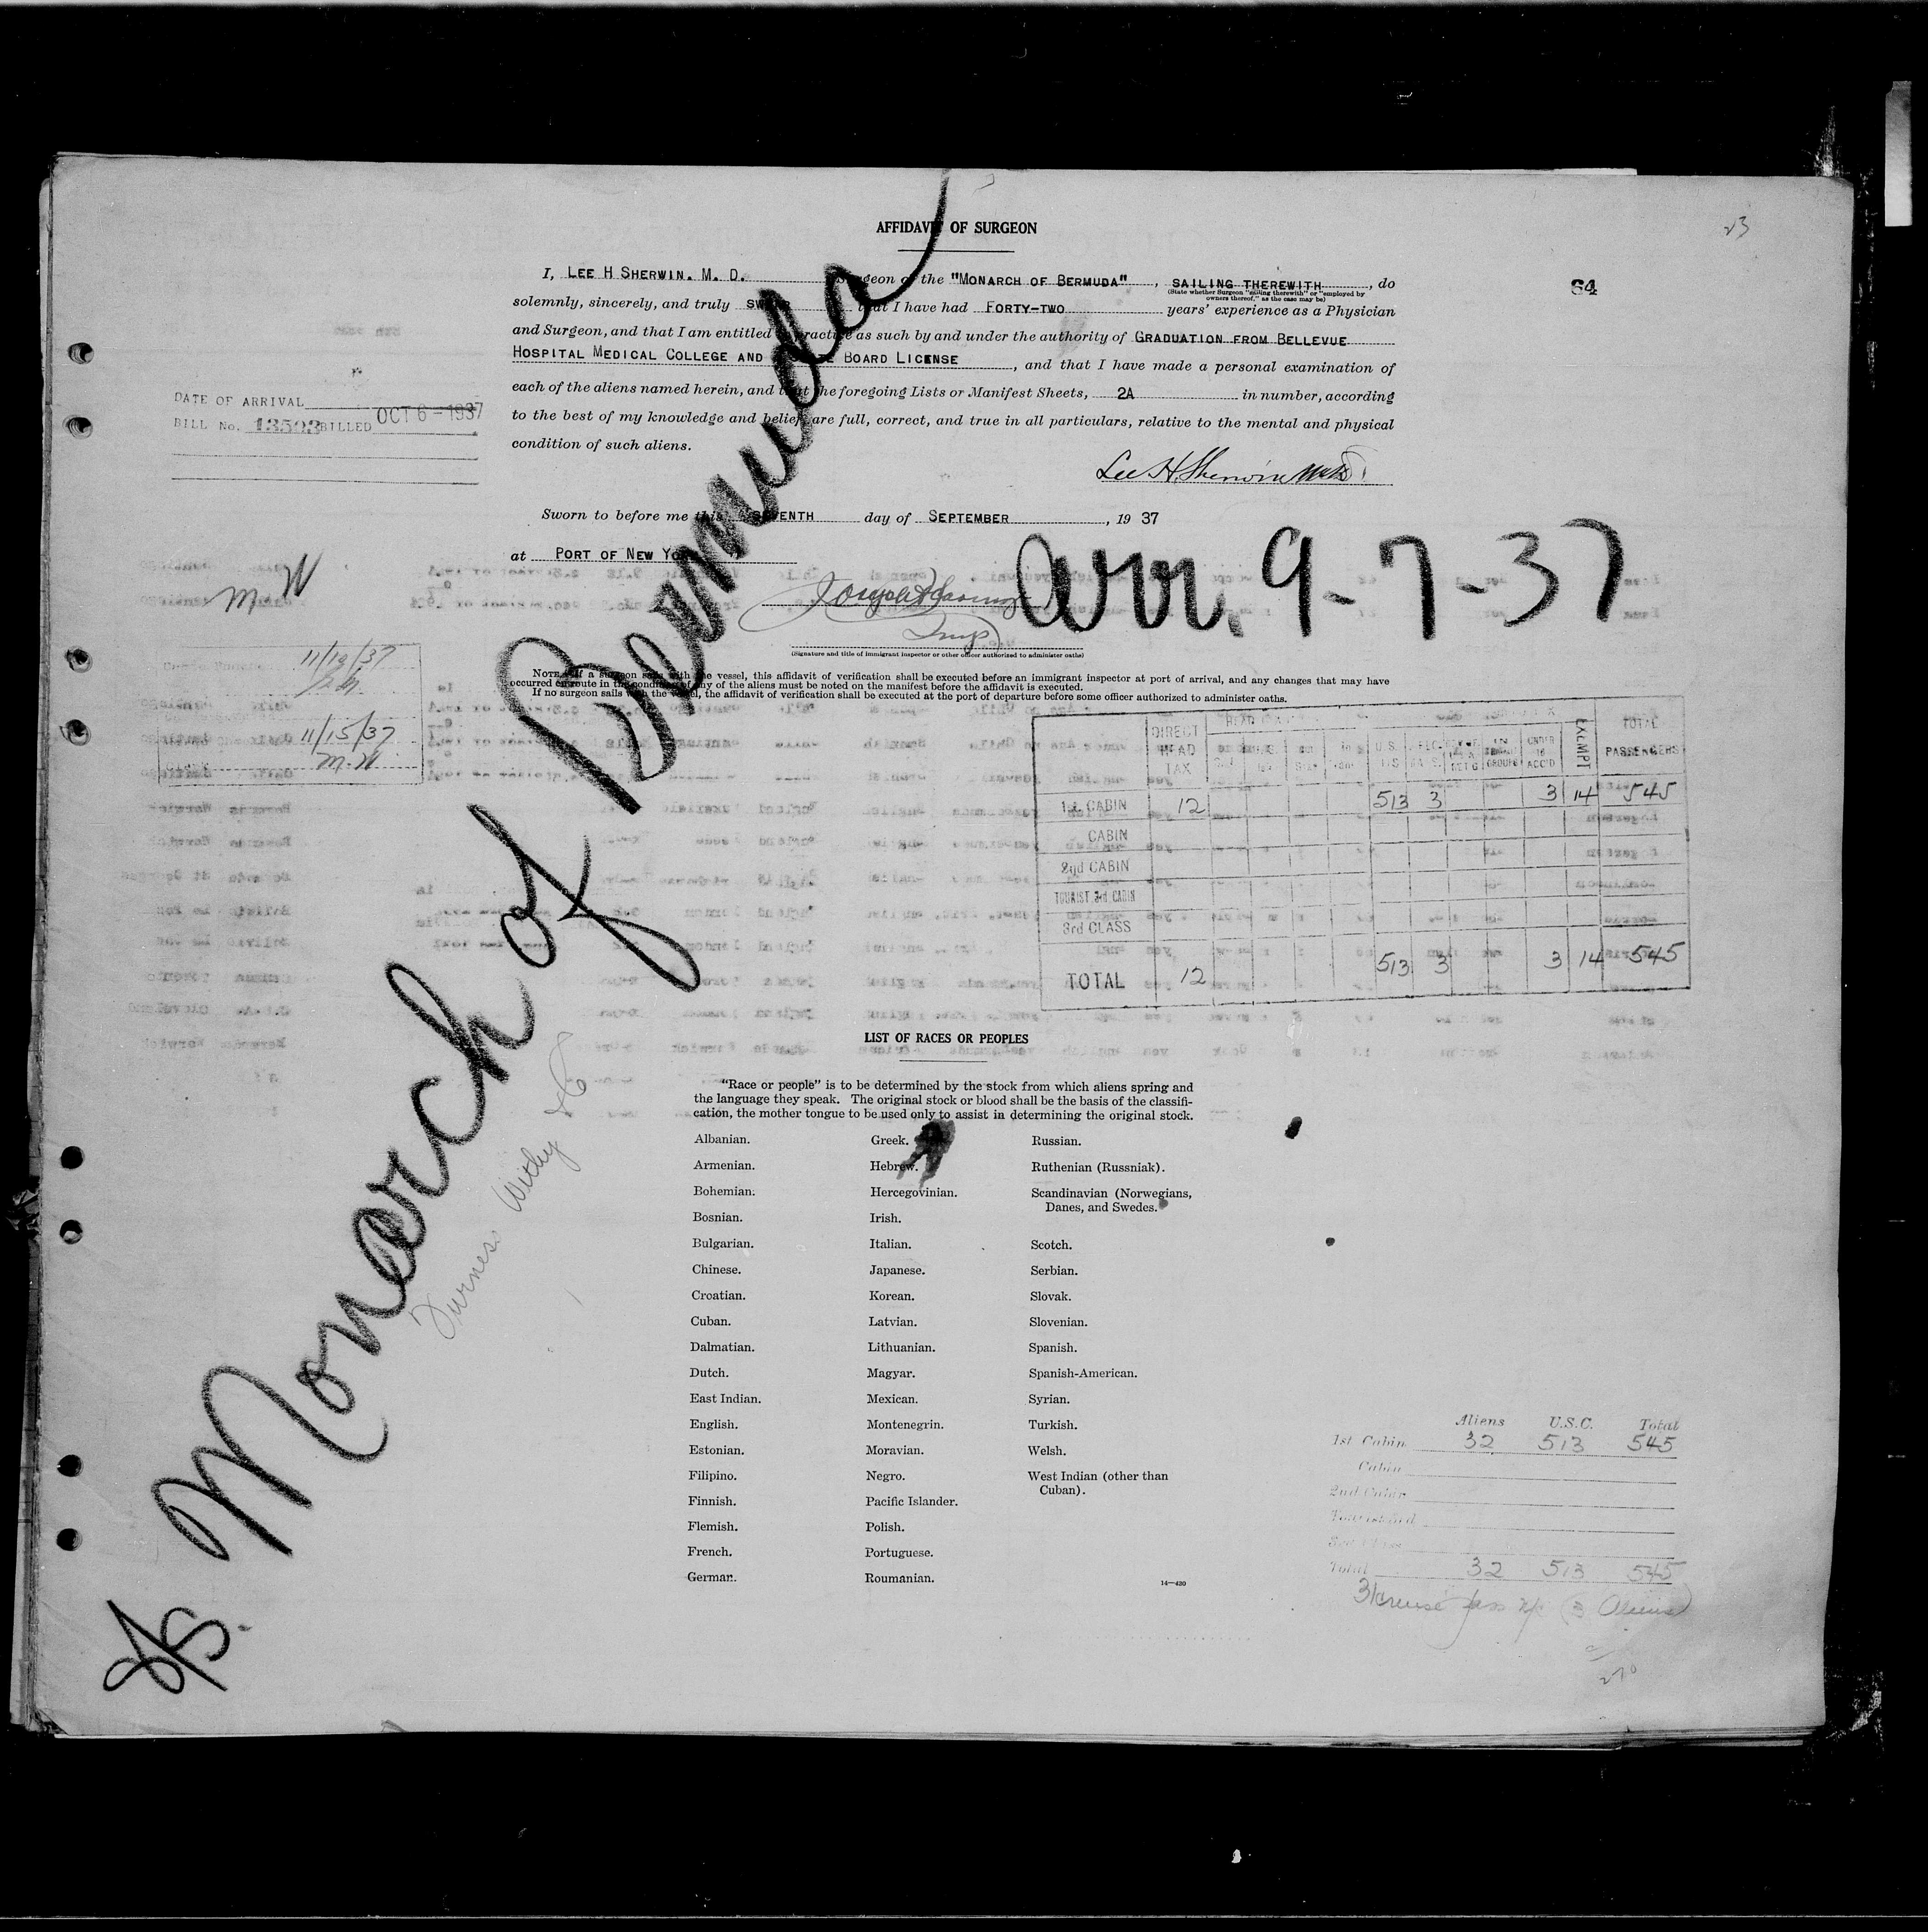 23
AFFIDAVIT OF SURGEON
64
I, LEE H SHERWIN. M. D. Surgeon of the "MONARCH OF BERMUDA", SAILING THEREWITH, do
(State whether Surgeon "sailing therewith" or "employed by
owners thereof," as the case may be)
solemnly, sincerely, and truly that I have had FORTY-TWO years' experience as a Physician
and Surgeon, and that I am entitled to practice as such by and under the authority of GRADUATION FROM BELLEVUE
HOSPITAL MEDICAL COLLEGE AND BOARD LICENSE, and that I have made a personal examination of
each of the aliens named herein, and that the foregoing Lists or Manifest Sheets, 2A in number, according
to the best of my knowledge and belief, are full, correct, and true in all particulars, relative to the mental and physical
condition of such aliens.
Lee H. Sherwin M.D.
DATE OF ARRIVAL
BILL No. 13503 BILLED OCT 6 - 1937
Sworn to before me this SEVENTH day of SEPTEMBER, 19 37
at PORT OF NEW YORK
Insp
(Signature and title of immigrant inspector or other officer authorized to administer oaths)
Arr. 9-7-37
M W
11/12/37
11/15/37
M. W
NOTE.—If a surgeon sails with the vessel, this affidavit of verification shall be executed before an immigrant inspector at port of arrival, and any changes that may have
occurred en route in the condition of any of the aliens must be noted on the manifest before the affidavit is executed.
If no surgeon sails with the vessel, the affidavit of verification shall be executed at the port of departure before some officer authorized to administer oaths.
S/S. Monarch of Bermuda
Furness Withy & C
DIRECT HEAD TAX U.S. UNDER 16 ACC'D EXEMPT TOTAL PASSENGERS
1st CABIN 12 513 3 3 14 545
CABIN
2nd CABIN
TOURIST 3rd CABIN
3rd CLASS
TOTAL 12 513 3 3 14 545
LIST OF RACES OR PEOPLES
"Race or people" is to be determined by the stock from which aliens spring and
the language they speak. The original stock or blood shall be the basis of the classifi-
cation, the mother tongue to be used only to assist in determining the original stock.
Albanian.
Armenian.
Bohemian.
Bosnian.
Bulgarian.
Chinese.
Croatian.
Cuban.
Dalmatian.
Dutch.
East Indian.
English.
Estonian.
Filipino.
Finnish.
Flemish.
French.
German.
Greek.
Hebrew.
Hercegovinian.
Irish.
Italian.
Japanese.
Korean.
Latvian.
Lithuanian.
Magyar.
Mexican.
Montenegrin.
Moravian.
Negro.
Pacific Islander.
Polish.
Portuguese.
Roumanian.
Russian.
Ruthenian (Russniak).
Scandinavian (Norwegians,
Danes, and Swedes.
Scotch.
Serbian.
Slovak.
Slovenian.
Spanish.
Spanish-American.
Syrian.
Turkish.
Welsh.
West Indian (other than
Cuban).
14—430
Aliens U.S.C. Total
1st Cabin 32 513 545
Cabin
2nd Cabin
3rd Class
Total 32 513 545
(3 Aliens)
270